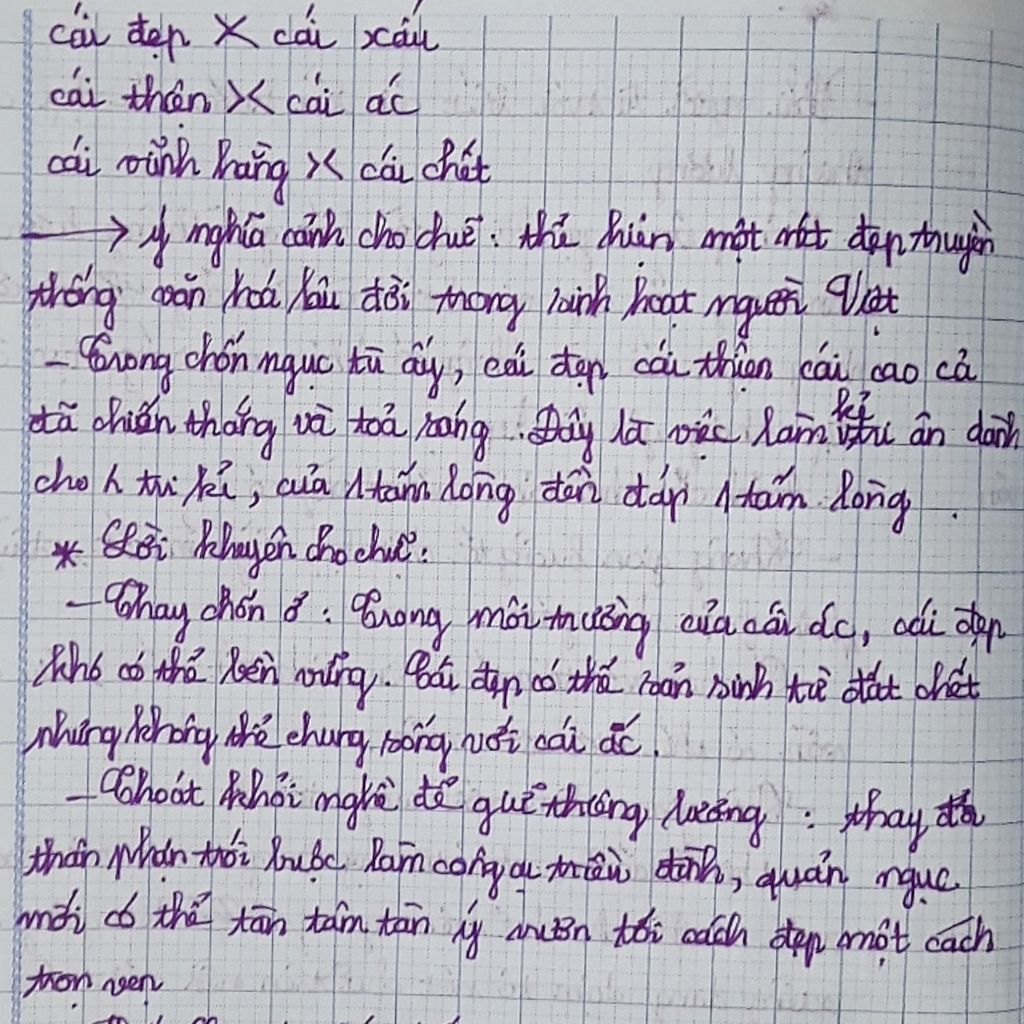 cái đẹp >< cái xấu
cái thiện >< cái ác
cái vĩnh hằng >< cái chết
→ ý nghĩa cảnh cho chữ: thể hiện một nét đẹp truyền
thống văn hoá lâu đời trong sinh hoạt người Việt
- Trong chốn ngục tù ấy, cái đẹp cái thiện cái cao cả
đã chiến thắng và toả sáng. Đây là việc làm kẻ tri ân dành
cho h tri kỉ, của 1 tấm lòng đền đáp 1 tấm lòng.
* Lời khuyên cho chữ:
- Thay chốn ở: Trong môi trường của cái ác, cái đẹp
khó có thể bền vững. Cái đẹp có thể sản sinh từ đất chết
nhưng không thể chung sống với cái ác.
- Thoát khỏi nghề để giữ thiêng lương: thay đổi
thân phận trói buộc làm công cụ triều đình, quản ngục
mới có thể tận tâm tận ý vươn tới cách đẹp một cách
trọn vẹn